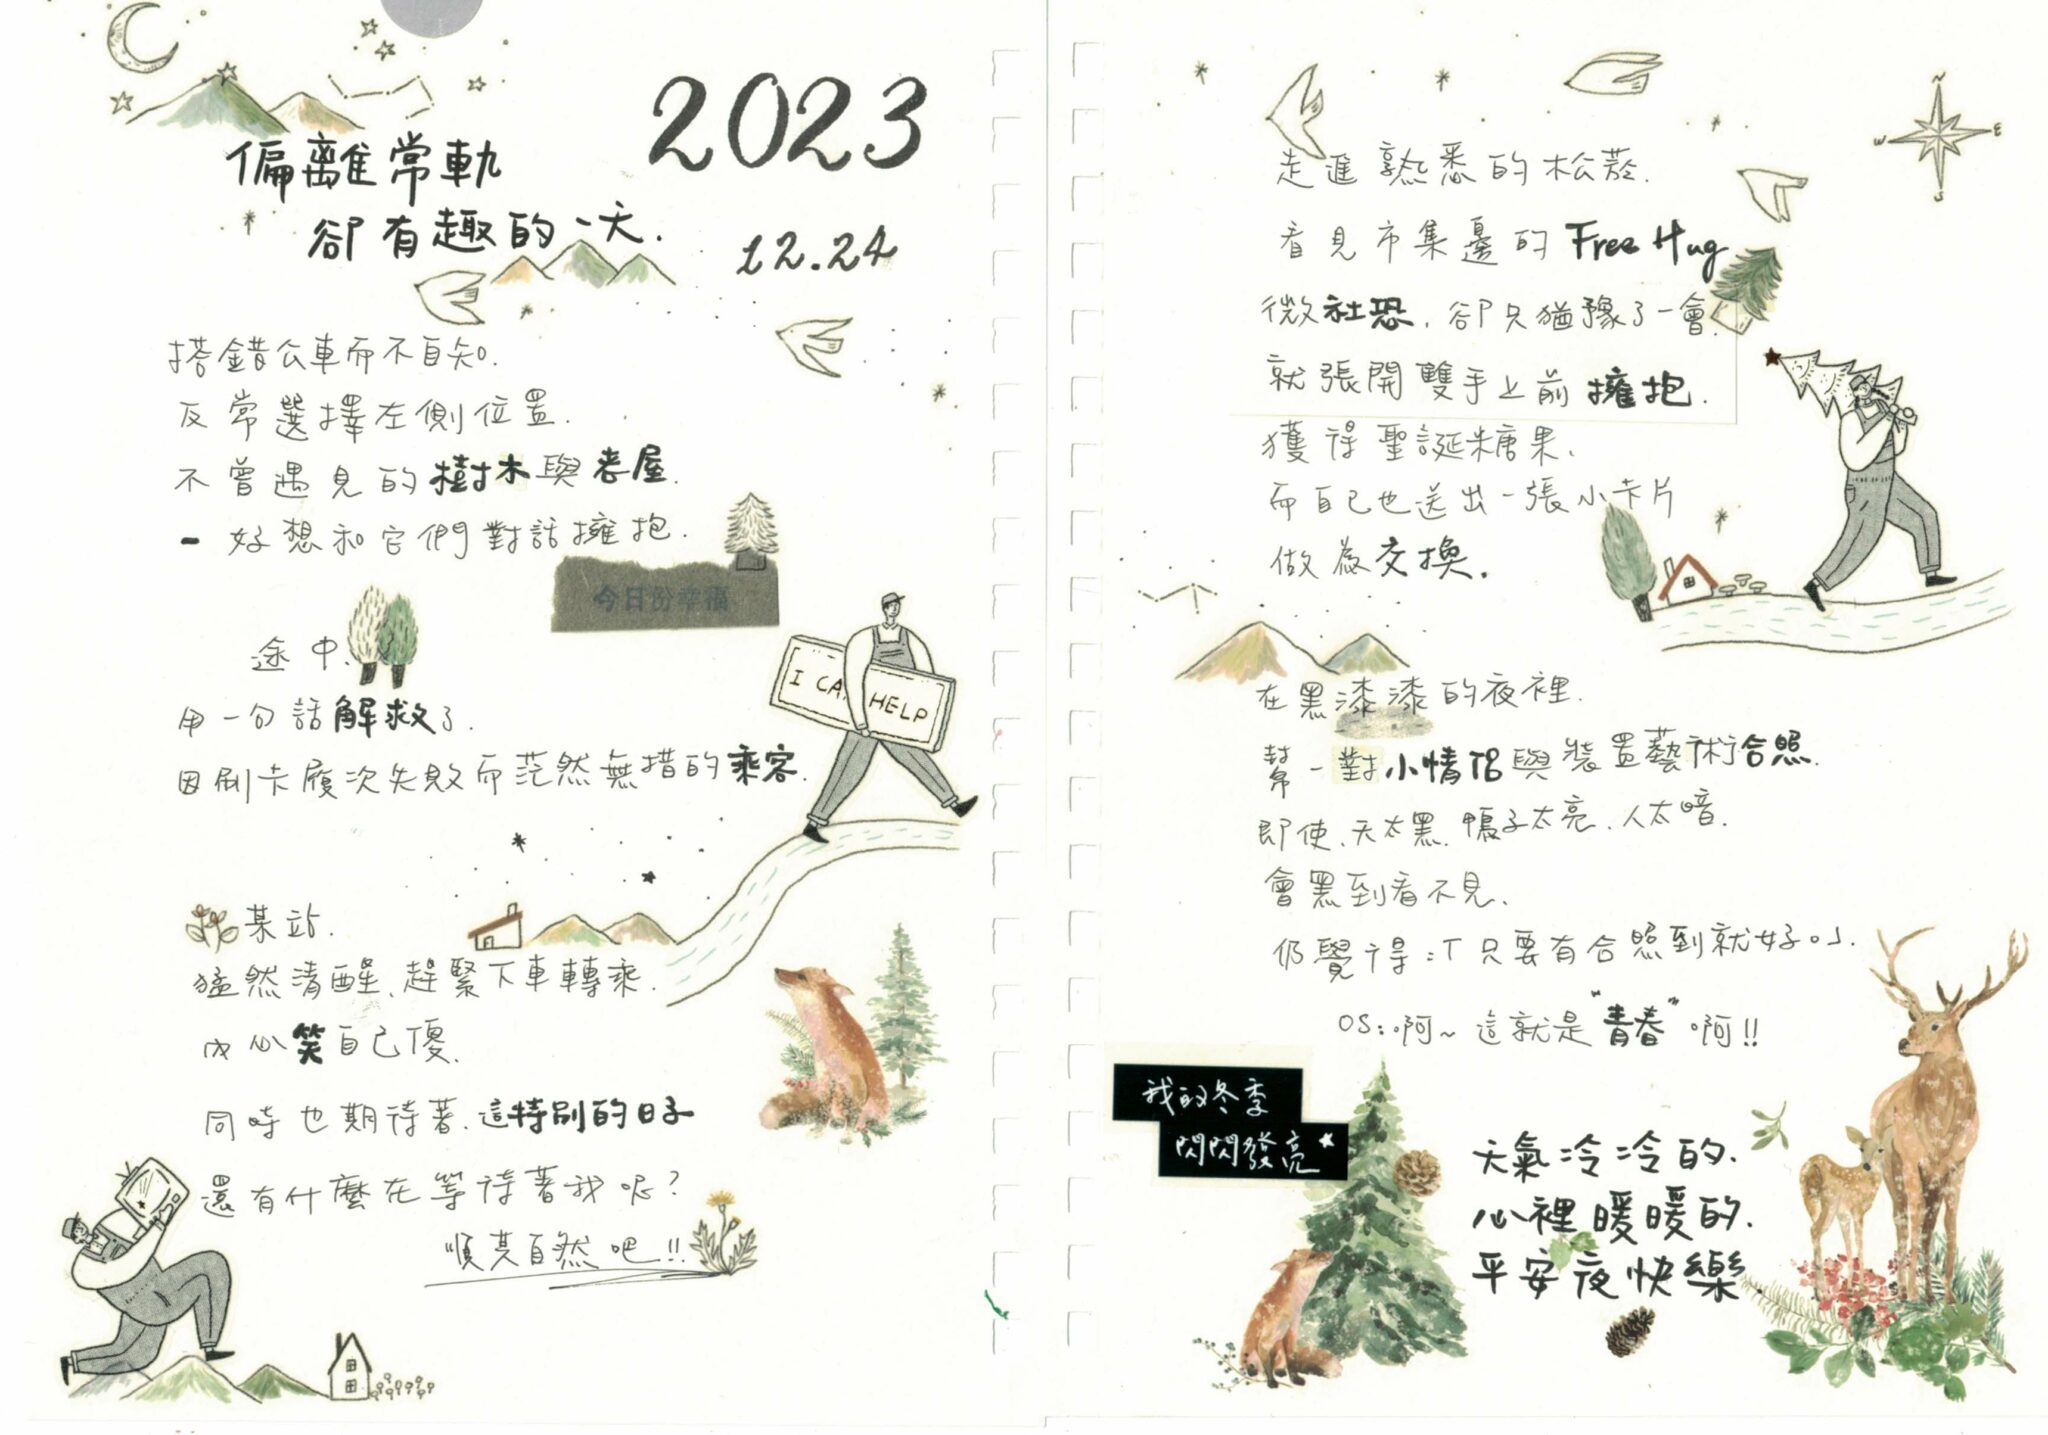 2023
12.24
偏離常軌
卻有趣的一天.
搭錯公車而不自知.
反常選擇左側位置.
不曾遇見的樹木與老屋.
- 好想和它們對話擁抱.
今日份幸福
途中.
用一句話解救了.
因刷卡屢次失敗而茫然無措的乘客.
I CA HELP
某站.
猛然清醒、趕緊下車轉乘.
內心笑自己傻.
同時也期待著.這特別的日子
還有什麼在等待著我呢?
順其自然吧!!
N
W E
S
走進熟悉的松菸.
看見市集邊的 Free Hug
微社恐.卻只猶豫了一會.
就張開雙手上前擁抱.
獲得聖誕糖果.
而自己也送出一張小卡片
做為交換.
在黑漆漆的夜裡.
幫一對小情侶與裝置藝術合照.
即使.天太黑.鴨子太亮.人太暗.
會黑到看不見.
仍覺得:「只要有合照到就好。」.
OS:啊~這就是"青春"啊!!
我的冬季
閃閃發亮
天氣冷冷的.
心裡暖暖的.
平安夜快樂